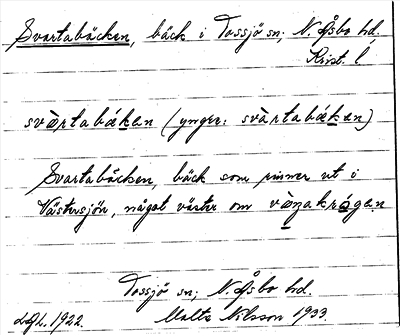 Svartabäcken, bäck i Tossjö sn; N. Åsbo hd.
Krist. l
svàrtabákan (yngre: svàrtabákan)
Svartabäcken, bäck som rinner ut i
Västersjön, något väster om vànakrógen.
Tossjö sn; N. Åsbo hd.
1922. Malte Nilsson 1933.